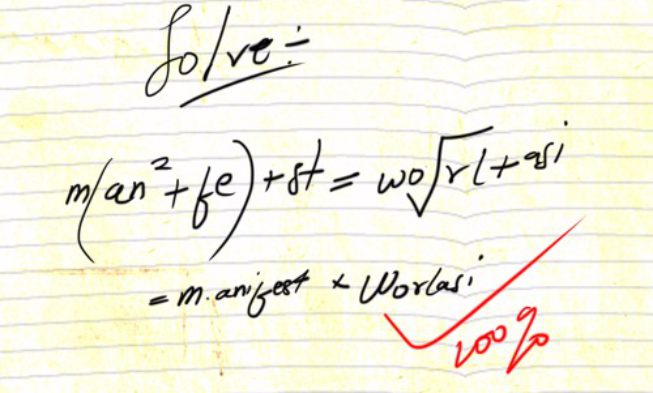 Solve÷
m(an²+fe)+st = wo√rl+asi
= m.anifest × Worlasi
100%